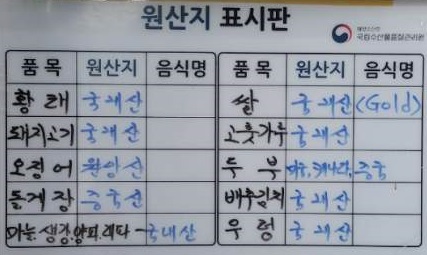 원산지 표시판
해양수산부
국립수산물품질관리원
품 목 원산지 음식명 품 목 원산지 음식명
황 태 국내산 쌀 국내산 (Gold)
돼지고기 국내산 고춧가루 국내산
오징어 원양산 두 부 미국, 캐나다, 중국
돌게장 중국산 배추김치 국내산
마늘, 생강, 양파, 대파 - 국내산 우 렁 국내산